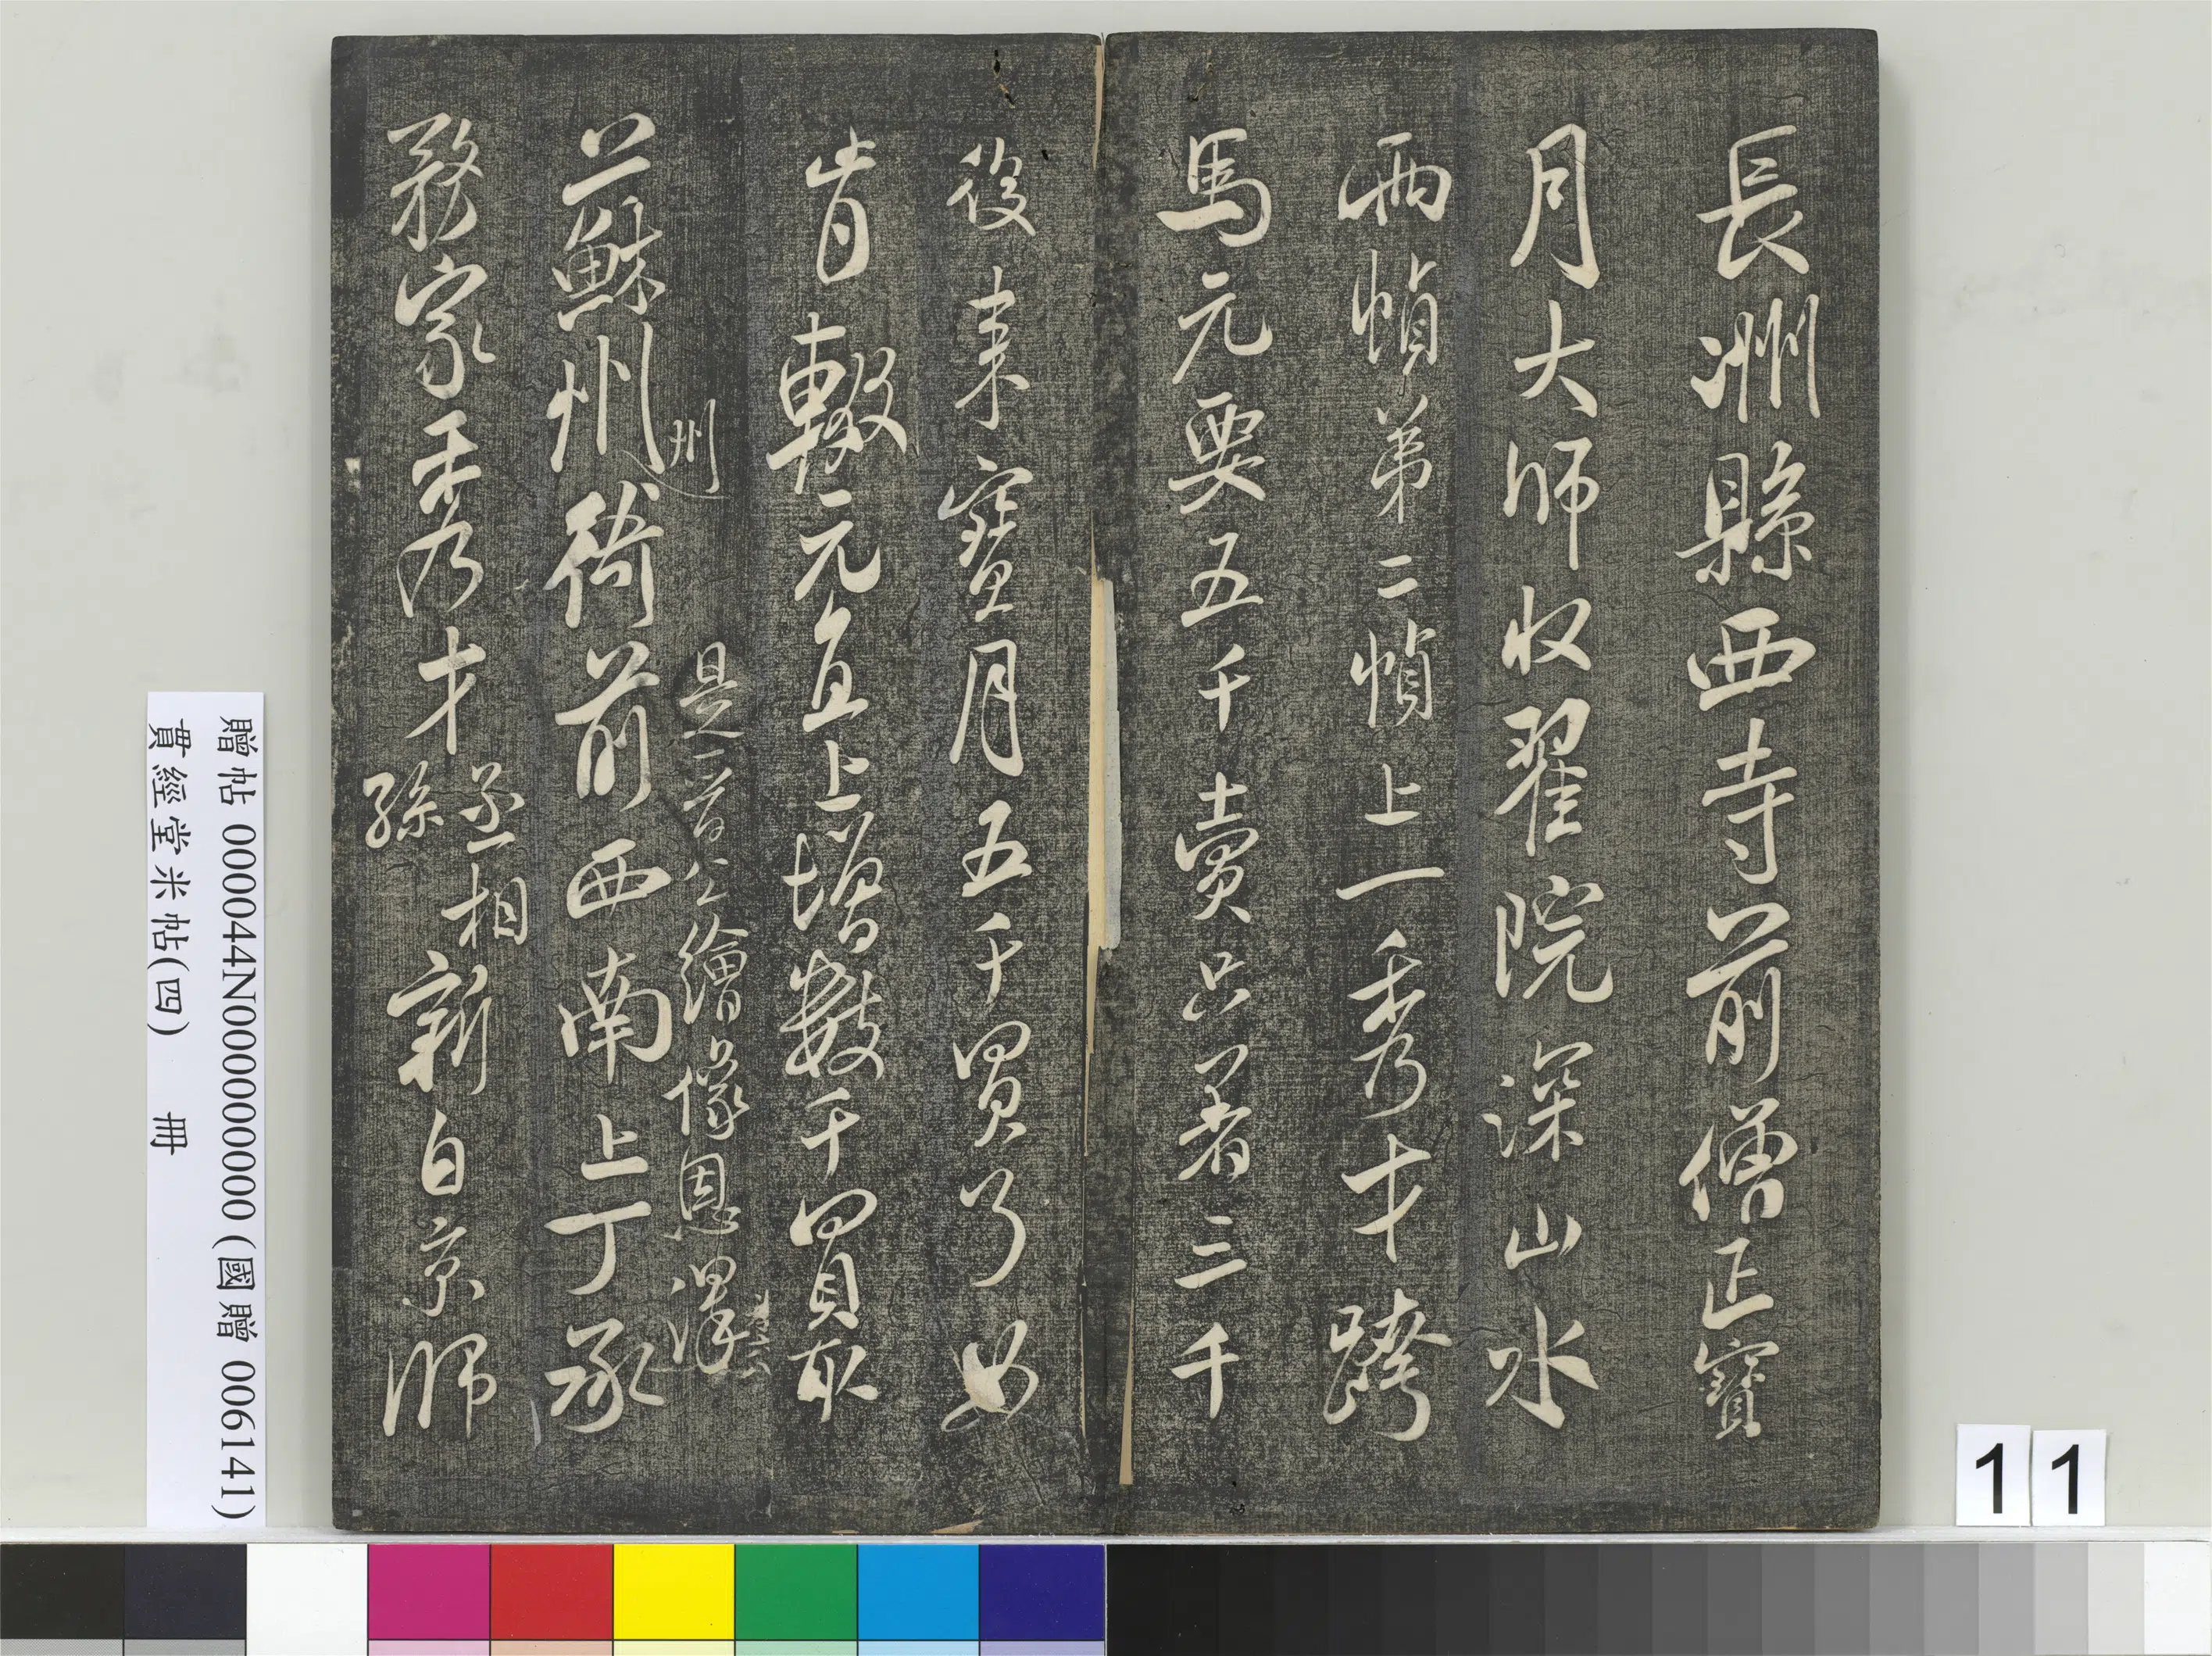 長洲縣西寺前僧正寶
月大師收翟院深山水
兩幀第二幀上一秀才跨
馬元要五千賣只著三千
後來寶月五千買了如
肯輟元直上增數千買取
是一首公繪像恩澤
蘇州
州
衙前西南上丁承
務家秀才
丞相
孫
新自京師
贈帖 000044N000000000 (國贈 006141)
貫經堂米帖(四) 冊
11